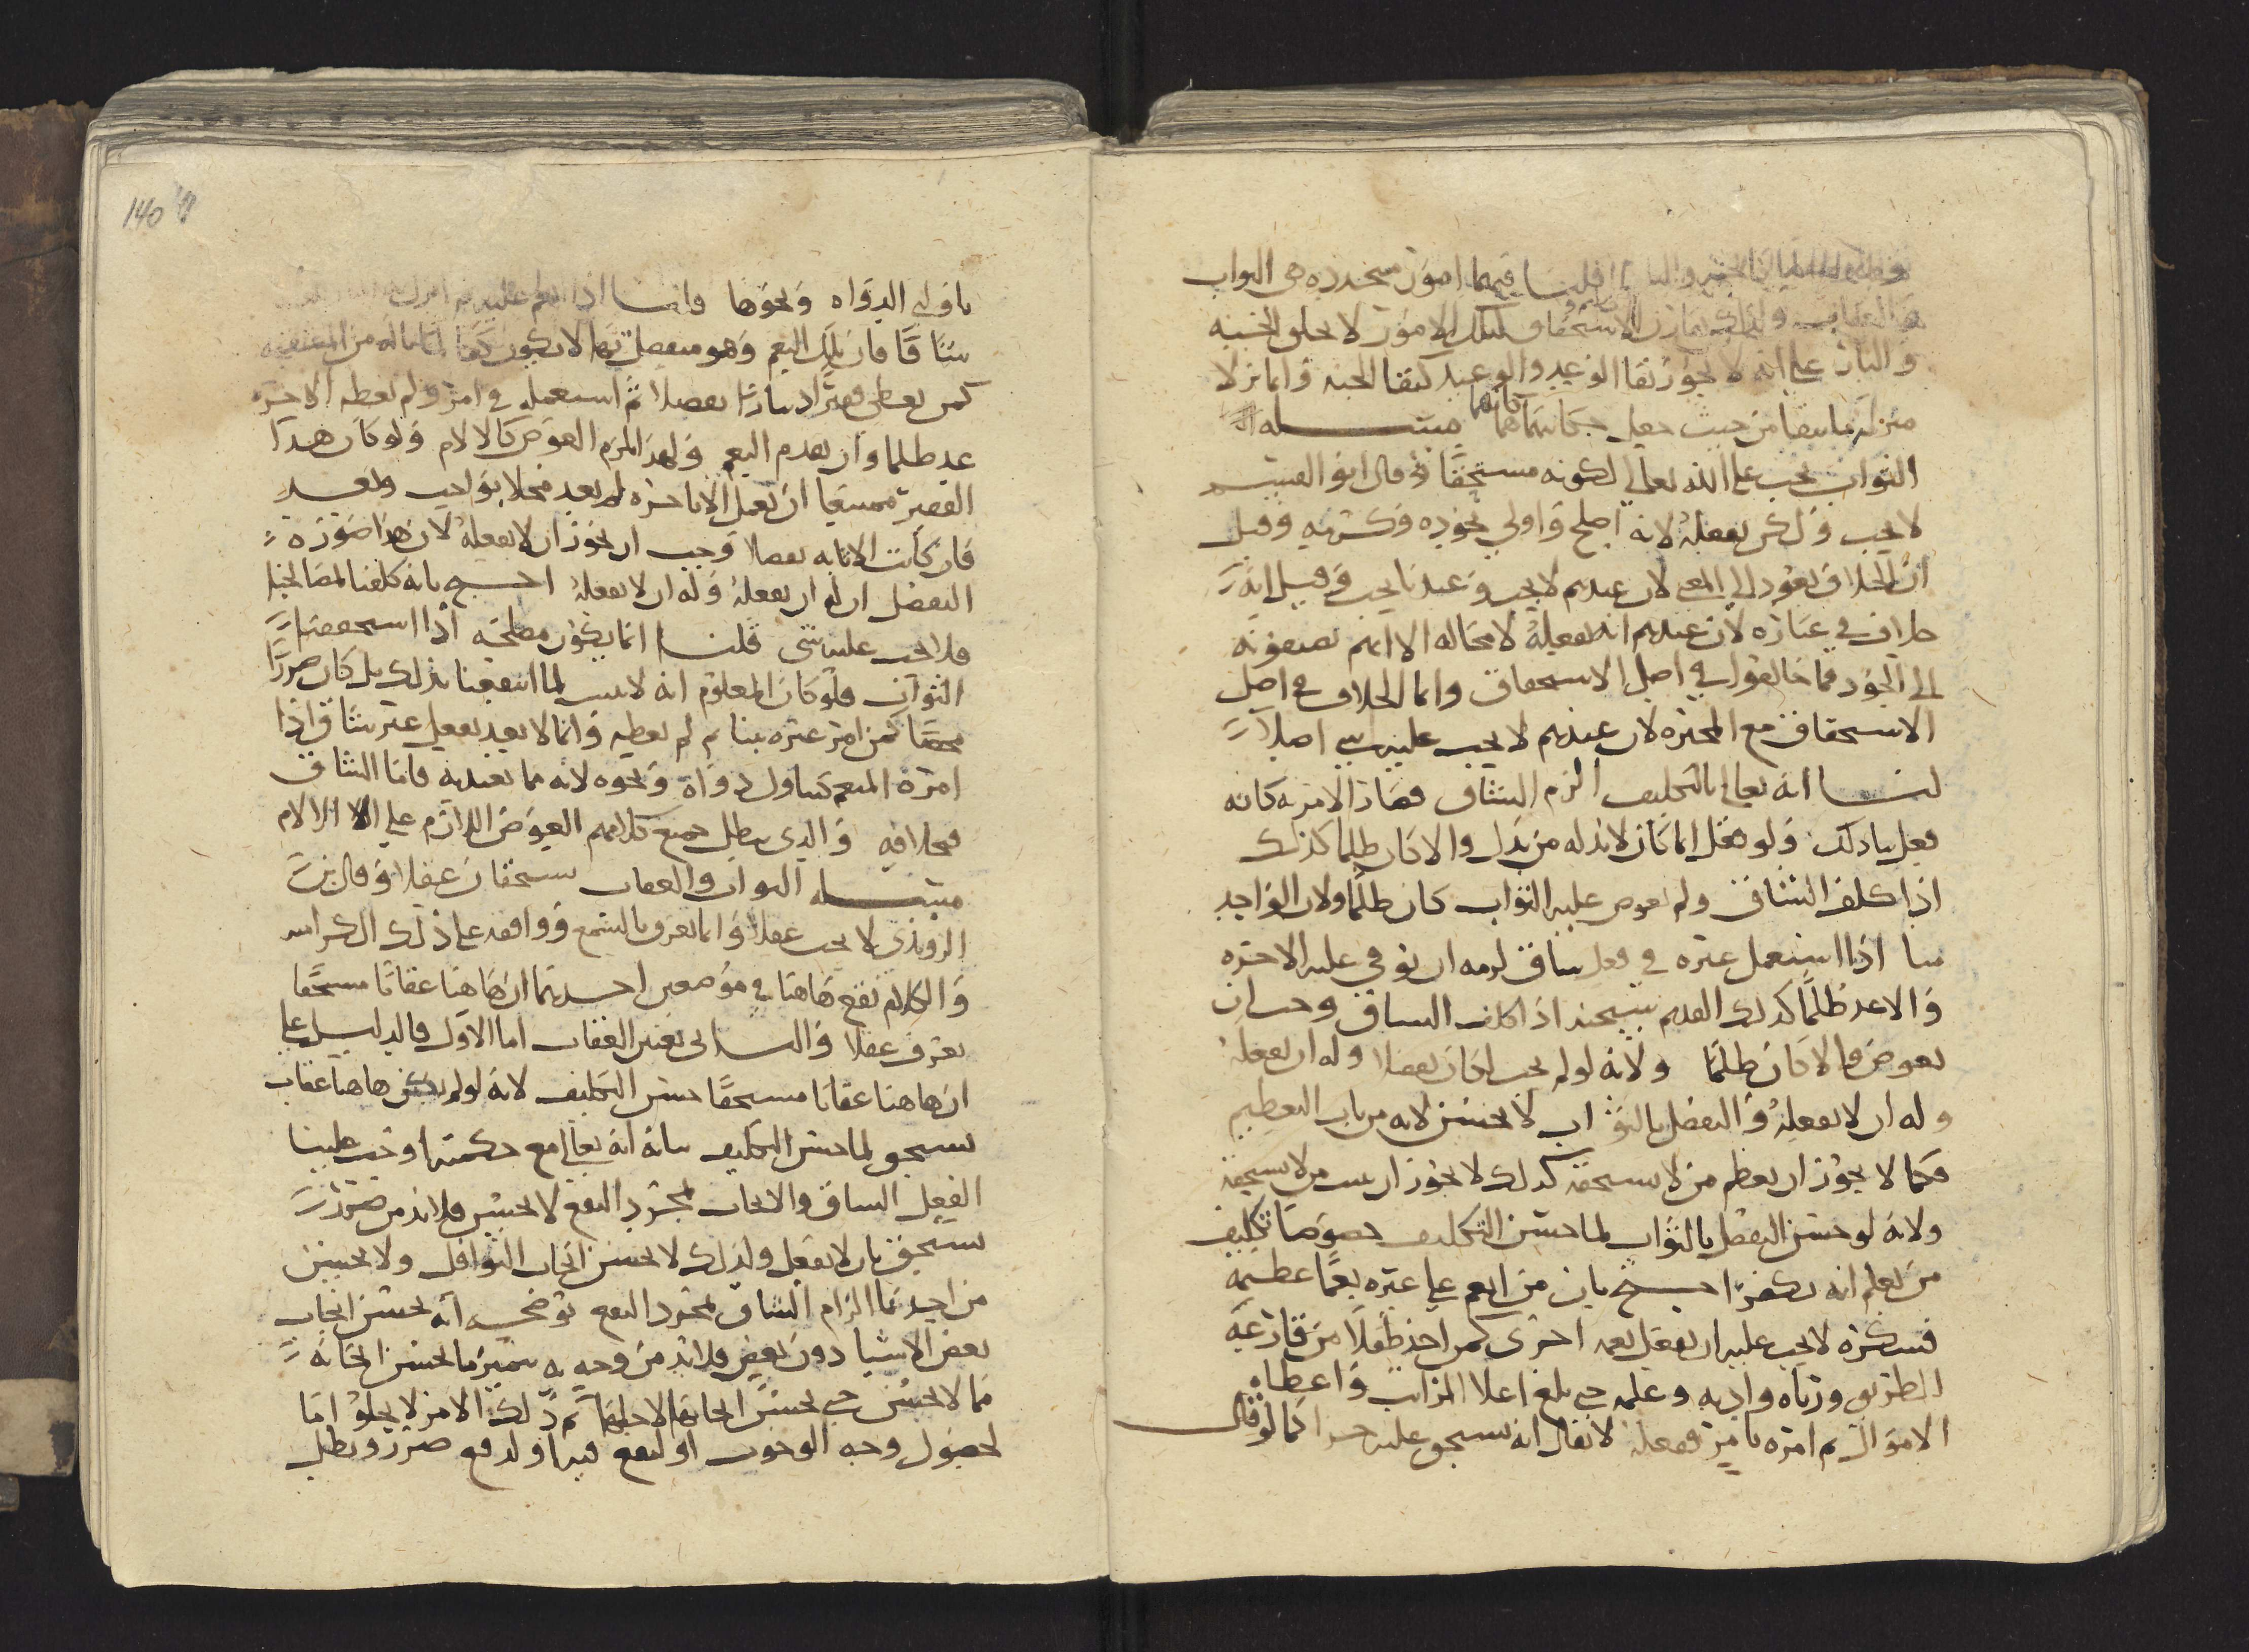 قلنا فيهما امور متجدده هي الثواب
والعقاب الاستحقاق لتلك الامور لا يخلو الجنه
والنار على انه لا يجوز بقا الوعيد والوعيد كبقا الجنه وانما نزلا
منزله ما يبقا من حيث جعل مسئله
الثواب يجب على الله تعالى لكونه مستحقا وقال ابو القسم
لا يجب ولكن يفعله لانه اصلح واولى بجوده وكرمه وقيل
ان الخلاف يعود الى المعنى لان عندهم لا يجب وعندنا يجب وقيل انه
خلاف في عباره لان عندهم انه يفعله لا محاله الا انهم يضيفونه
الى الجود فما خالفوا في اصل الاستحقاق وانما الخلاف في اصل
الاستحقاق مع المجبره لان عندهم لا يجب عليه شي اصلا
لنا انه تعالى بالتكليف الزم الشاق فصار الامر به كانه
فعل بنا ذلك ولو فعل انما كان لا بد له من بدل والا كان ظلما كذلك
اذا كلف الشاق ولم يعوض عليه الثواب كان ظلما ولان الواحد
منا اذا استعمل غيره في فعل شاق لزمه ان يوفي عليه الاجره
والا عد ظلما كذلك القديم سبحنه اذا كلف الشاق وجب ان
يعوض والا كان ظلما ولانه لو لم يجب لكان تفضلا وله ان يفعله
وله ان لا يفعله والتفضل بالثواب لا يحسن لانه من باب التعظيم
فكما لا يجوز ان يعظم من لا يستحقه كذلك لا يجوز ان يثيب من لا يستحقه
ولانه لو حسن التفضل بالثواب لما حسن التكليف خصوصا تكليف
من يعلم انه يكفر احتج بان من انعم على غيره نعما عظيمه
فشكره لا يجب عليه ان يفعل نعمه اخرى كمن اخذ طفلا من قارعه
الطريق ورباه وادبه وعلمه حتى بلغ اعلا المراتب واعطاه
الاموال ثم امره بامر ففعله لا يقال انه يستحق عليه جزا كما لو قال
ناولني الدواه ونحوها قلنا اذا انعم عليه ثم
شاقا فان تلك النعم وهو متفضل بها لا يكون لما ناله من المشقه
كمن يعطي فقيرا دينارا تفضلا ثم استعمله في امر ولم يعطه الاجره
عد ظلما وان تقدم النعم ولهذا لزم العوض كالالام ولو كان هذا
الفقير ممتنعا ان يعمل الا باجره لم يعد مخلا بواجب وبعد
فان كانت الاثابه تفضلا وجب ان يجوز ان لا يفعله لان هذا صوره
التفضل ان له ان يفعله وله ان لا يفعله احتج بانه كلفنا لمصالحنا
فلا يجب عليه شي قلنا انما يكون مصلحه اذا استحققنا
الثواب فلو كان المعلوم انه لا يثيب لما انتفعنا بذلك بل كان ضررا
محضا كمن امر غيره بنا ثم لم يعطه وانما لا يعد بفعل غير شاق اذا
امره المنعم كناول دواه ونحوه لانه مما يعتد به فاما الشاق
فبخلافه والذي يبطل جميع كلامهم العوض اللازم على الالام
مسئله الثواب والعقاب يستحقان عقلا وقال بن
الروندي لا يجب عقلا وانما يعرف بالسمع ووافقه على ذلك الكراميه
والكلام يقع هاهنا في موضعين احدهما ان هاهنا عقابا مستحقا
يعرف عقلا والثاني تعيين العقاب اما الاول فالدليل على
ان هاهنا عقابا مستحقا حسن التكليف لانه لو لم يكن هاهنا عقاب
يستحق لما حسن التكليف بيانه انه تعالى مع حكمته اوجب علينا
الفعل الشاق والايجاب لمجرد النفع لا يحسن فلا بد من ضرر
يستحق بان لا يفعل ولذلك لا يحسن ايجاب النوافل ولا يحسن
من احدنا الزام الشاق لمجرد النفع يوضحه انه يحسن ايجاب
بعض الاشيا دون بعض فلا بد من وجه به يتميز ما يحسن ايجابه
مما لا يحسن حتى يحسن ايجابه لاجلها ثم ذلك الامر لا يخلوا اما
لحصول وجه الوجوب او لنفع فيه او لدفع ضرر وبطل
140